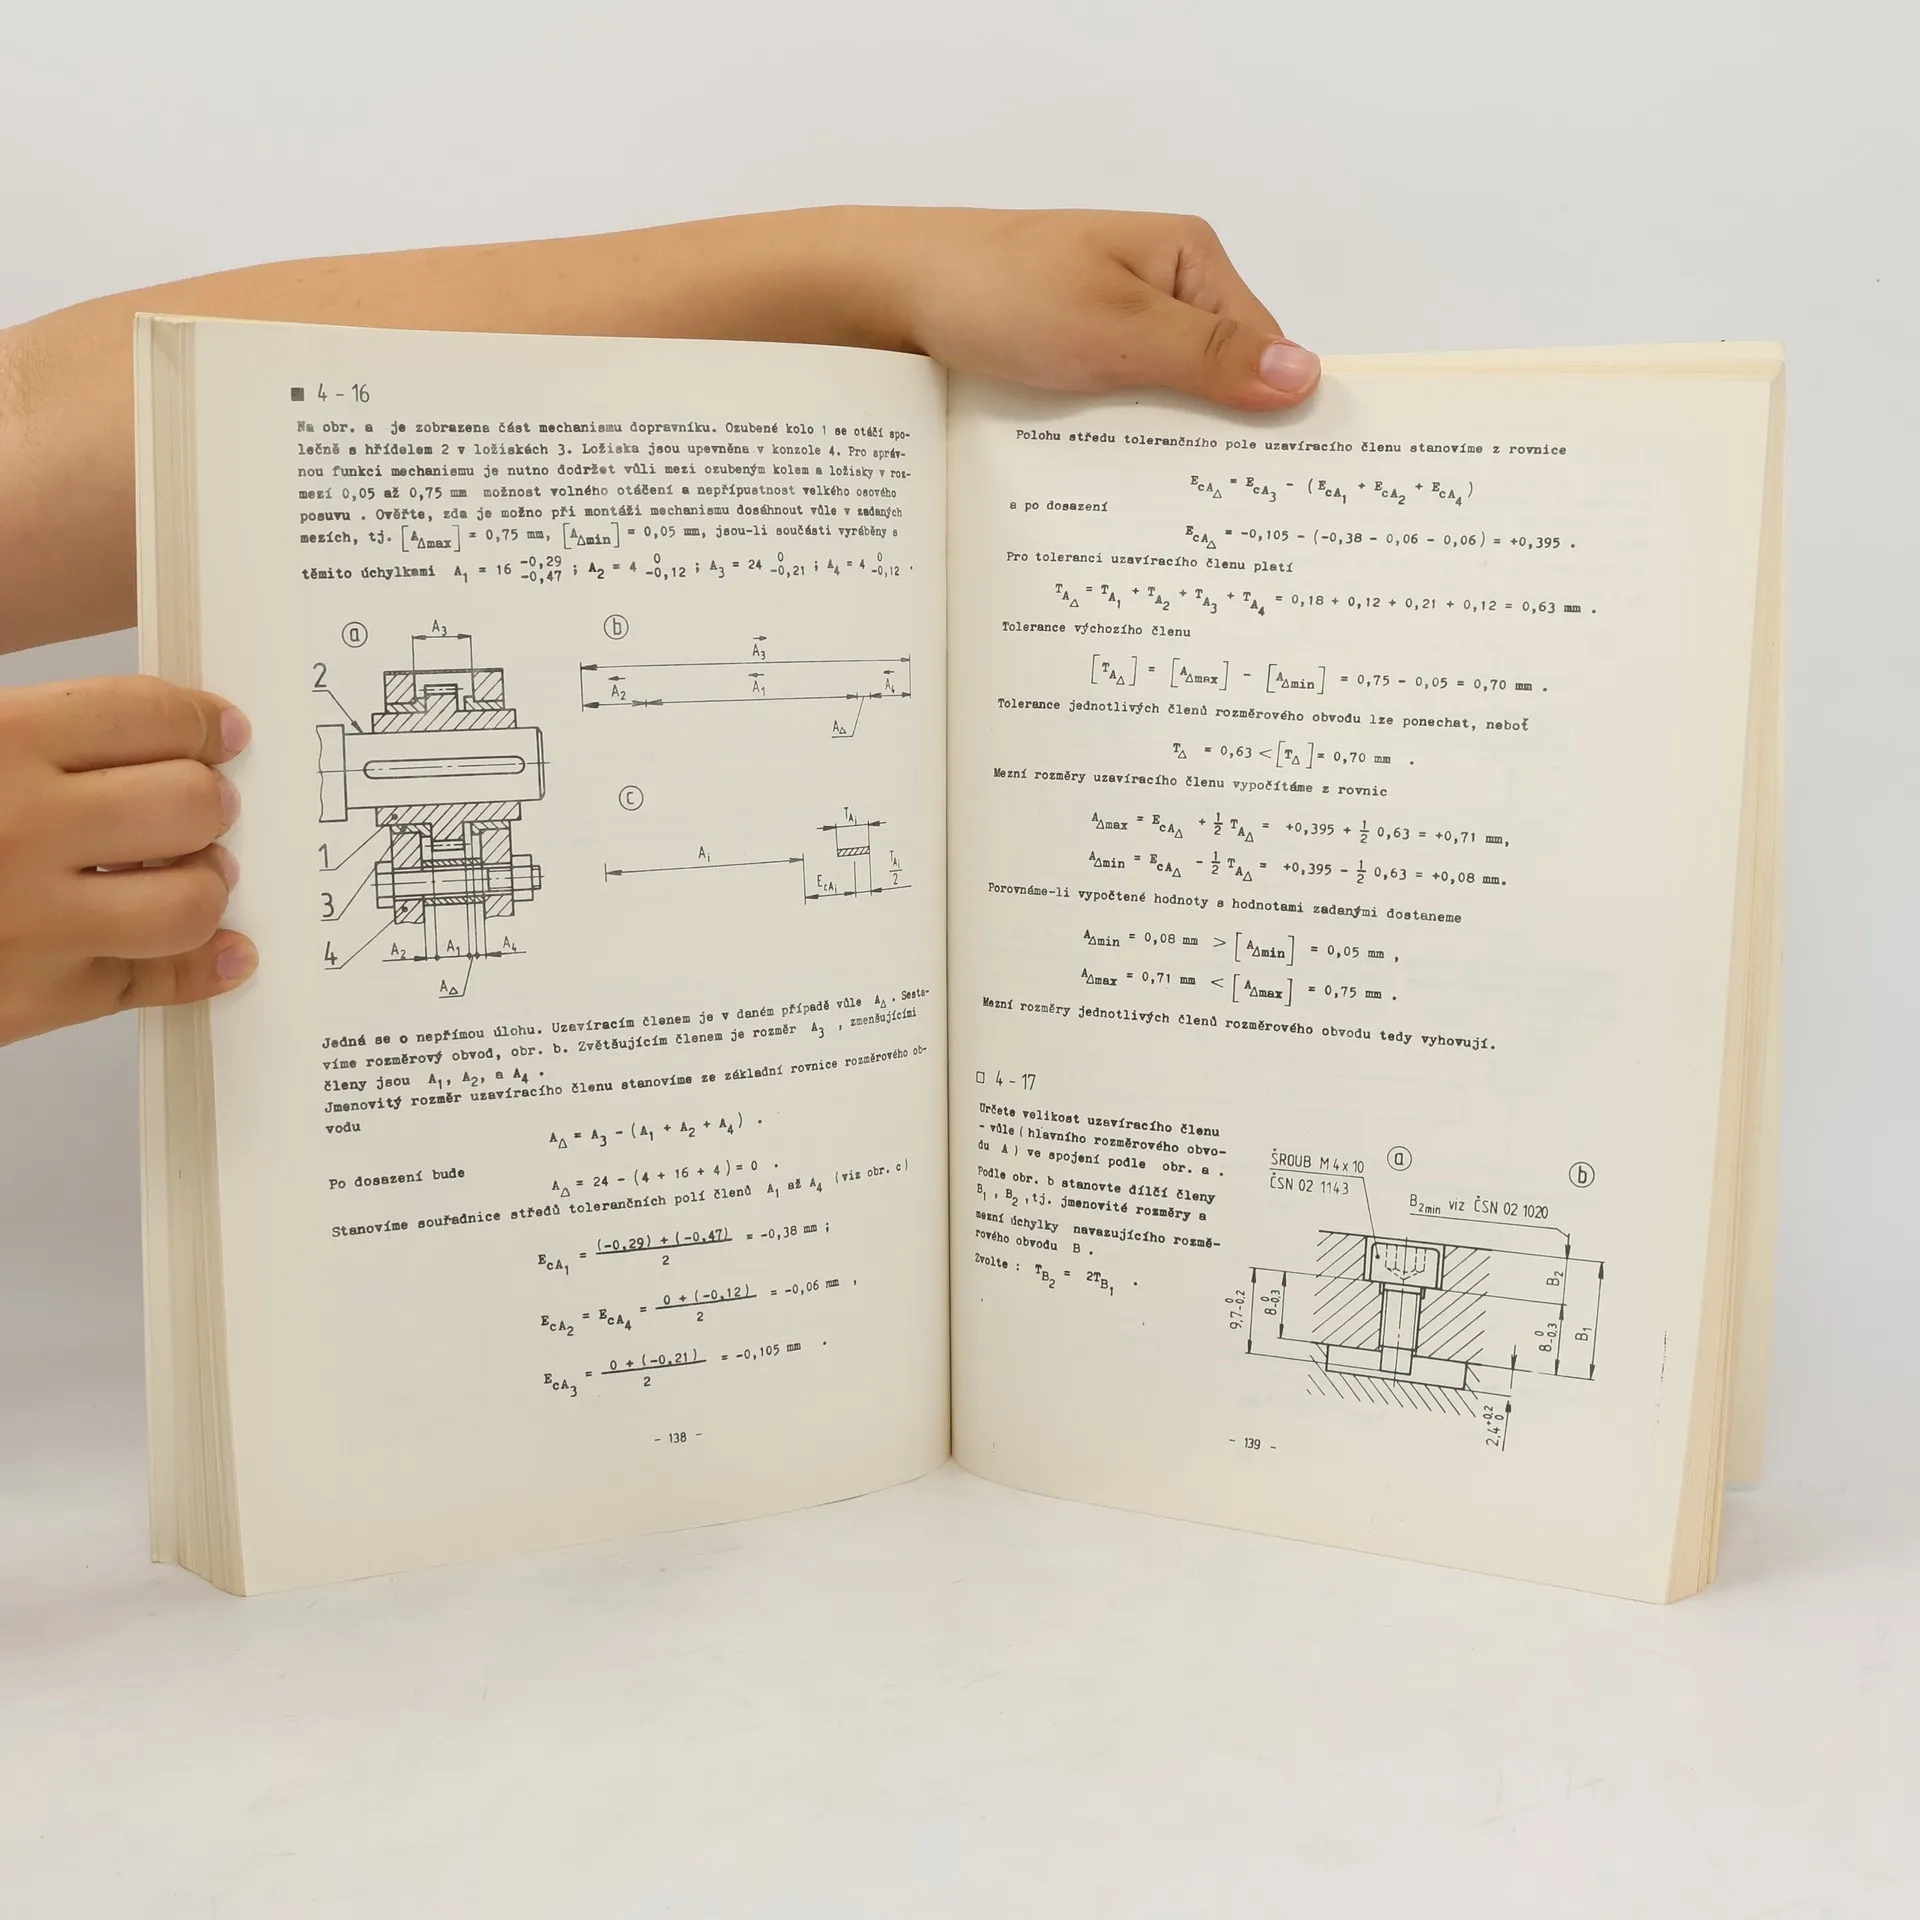 ■ 4 - 16
Na obr. a je zobrazena část mechanismu dopravníku. Ozubené kolo 1 se otáčí spo-
lečně s hřídelem 2 v ložiskách 3. Ložiska jsou upevněna v konzole 4. Pro správ-
nou funkci mechanismu je nutno dodržet vůli mezi ozubeným kolem a ložisky v roz-
mezí 0,05 až 0,75 mm možnost volného otáčení a nepřípustnost velkého osového
posuvu . Ověřte, zda je možno při montáži mechanismu dosáhnout vůle v zadaných
mezích, tj. [A∆max] = 0,75 mm, [A∆min] = 0,05 mm, jsou-li součásti vyráběny s
těmito úchylkami A1 = 16 -0,29 -0,47 ; A2 = 4 0 -0,12 ; A3 = 24 0 -0,21 ; A4 = 4 0 -0,12 .
a
A3
2
1
3
4
A2 A1 A4
A∆
b
A3
A2 A1 A4
A∆
c
Ai
TAi
EcAi
TAi/2
Jedná se o nepřímou úlohu. Uzavíracím členem je v daném případě vůle A∆ . Sesta-
víme rozměrový obvod, obr. b. Zvětšujícím členem je rozměr A3 , zmenšujícími
členy jsou A1, A2, a A4 .
Jmenovitý rozměr uzavíracího členu stanovíme ze základní rovnice rozměrového ob-
vodu
A∆ = A3 - (A1 + A2 + A4) .
Po dosazení bude
A∆ = 24 - (4 + 16 + 4) = 0 .
Stanovíme souřadnice středů tolerančních polí členů A1 až A4 (viz obr. c)
EcA1 = (-0,29) + (-0,47) / 2 = -0,38 mm ;
EcA2 = EcA4 = 0 + (-0,12) / 2 = -0,06 mm ,
EcA3 = 0 + (-0,21) / 2 = -0,105 mm .
- 138 -
Polohu středu tolerančního pole uzavíracího členu stanovíme z rovnice
EcA∆ = EcA3 - (EcA1 + EcA2 + EcA4)
a po dosazení
EcA∆ = -0,105 - (-0,38 - 0,06 - 0,06) = +0,395 .
Pro toleranci uzavíracího členu platí
TA∆ = TA1 + TA2 + TA3 + TA4 = 0,18 + 0,12 + 0,21 + 0,12 = 0,63 mm .
Tolerance výchozího členu
[TA∆] = [A∆max] - [A∆min] = 0,75 - 0,05 = 0,70 mm .
Tolerance jednotlivých členů rozměrového obvodu lze ponechat, neboť
T∆ = 0,63 < [T∆] = 0,70 mm .
Mezní rozměry uzavíracího členu vypočítáme z rovnic
A∆max = EcA∆ + 1/2 TA∆ = +0,395 + 1/2 0,63 = +0,71 mm,
A∆min = EcA∆ - 1/2 TA∆ = +0,395 - 1/2 0,63 = +0,08 mm.
Porovnáme-li vypočtené hodnoty s hodnotami zadanými dostaneme
A∆min = 0,08 mm > [A∆min] = 0,05 mm ,
A∆max = 0,71 mm < [A∆max] = 0,75 mm .
Mezní rozměry jednotlivých členů rozměrového obvodu tedy vyhovují.
□ 4 - 17
Určete velikost uzavíracího členu
- vůle ( hlavního rozměrového obvo-
du A ) ve spojení podle obr. a .
Podle obr. b stanovte dílčí členy
B1 , B2 ,tj. jmenovité rozměry a
mezní úchylky navazujícího rozmě-
rového obvodu B .
Zvolte : TB2 = 2TB1 .
ŠROUB M 4 x 10
ČSN 02 1143
a
b
B2min viz ČSN 02 1020
9,7 0 -0,2
8 0 -0,3
B2
8 0 -0,3
B1
2,4 +0,2 0
- 139 -